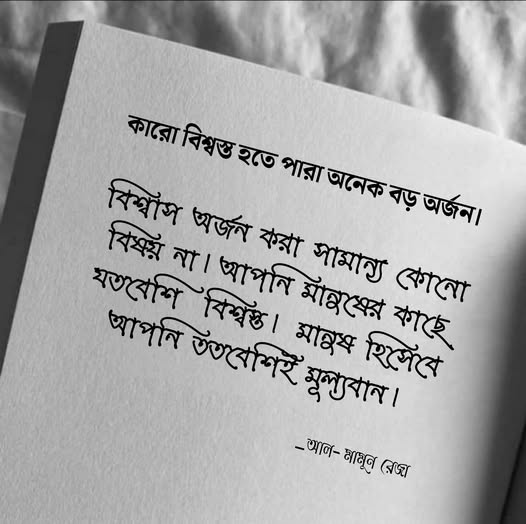 কারো বিশ্বস্ত হতে পারা অনেক বড় অর্জন।
বিশ্বাস অর্জন করা সামান্য কোনো
বিষয় না। আপনি মানুষের কাছে
যতবেশি বিশ্বস্ত। মানুষ হিসেবে
আপনি ততবেশিই মূল্যবান।
_আল- মামুন রেজা